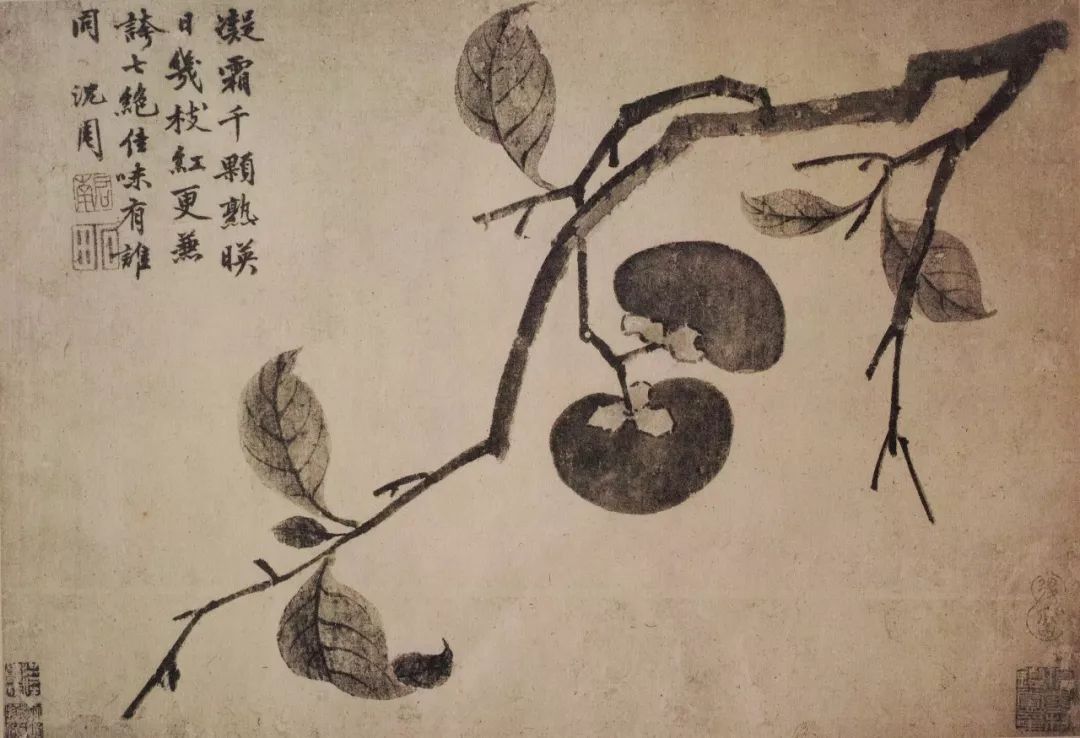 凝霜千顆熟暎
日幾枝紅更兼
誇七絶佳味有誰
同 沈周